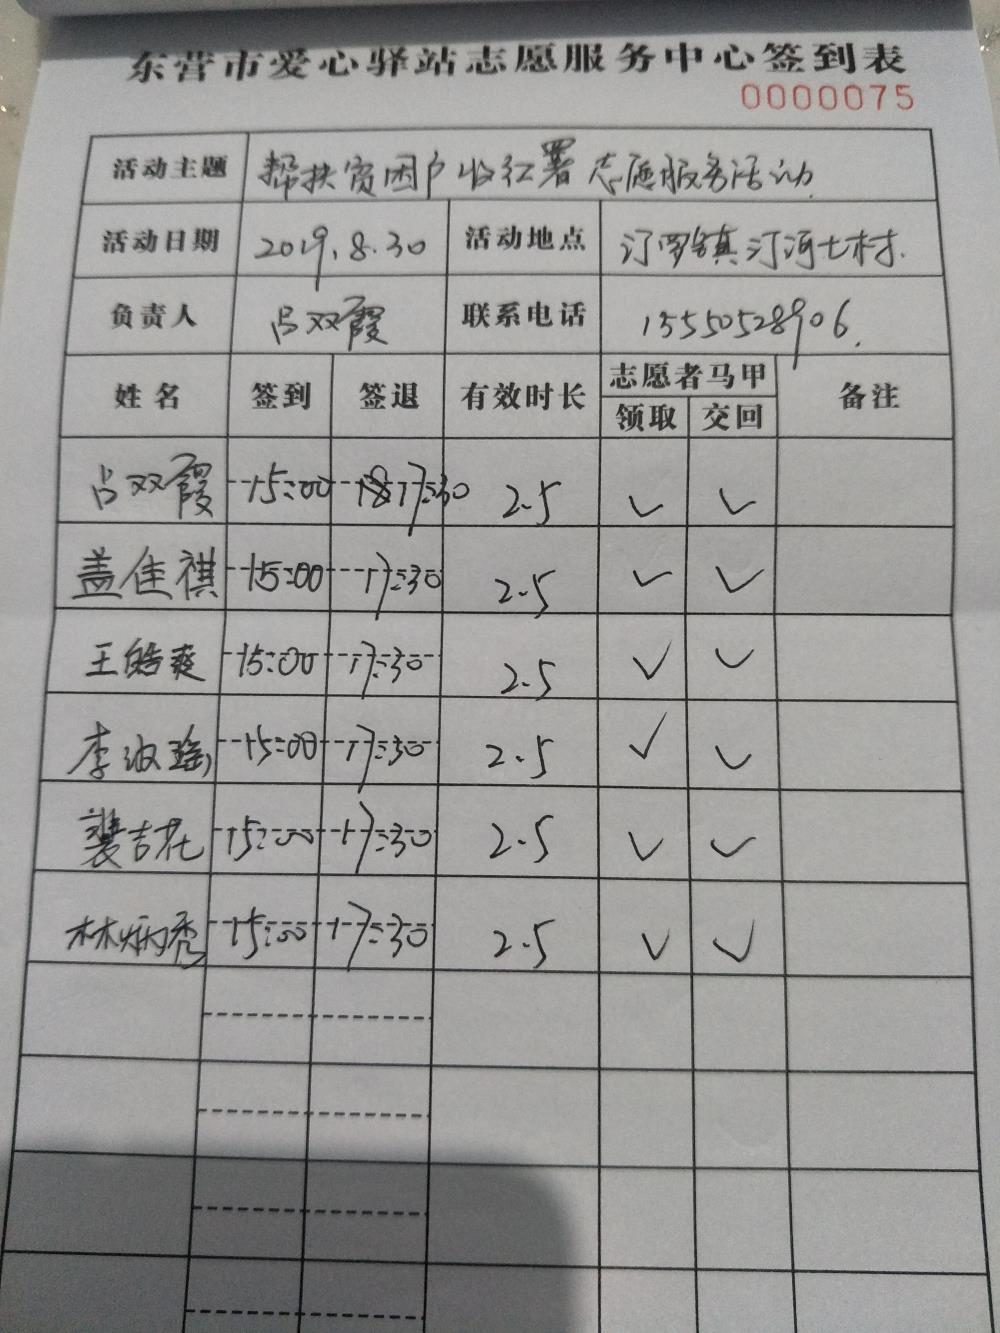 东营市爱心驿站志愿服务中心签到表
0000075
活动主题 帮扶贫困户收红署志愿服务活动
活动日期 2019.8.30 活动地点 汀罗镇汀河七村.
负责人 吕双霞 联系电话 15550528906.
姓名 签到 签退 有效时长 志愿者马甲 备注
领取 交回
吕双霞 15:00 17:30 2.5 ✓ ✓
盖佳祺 15:00 17:30 2.5 ✓ ✓
王皓爽 15:00 17:30 2.5 ✓ ✓
李 15:00 17:30 2.5 ✓ ✓
吉花 15:00 17:30 2.5 ✓ ✓
林炳秀 15:00 17:30 2.5 ✓ ✓